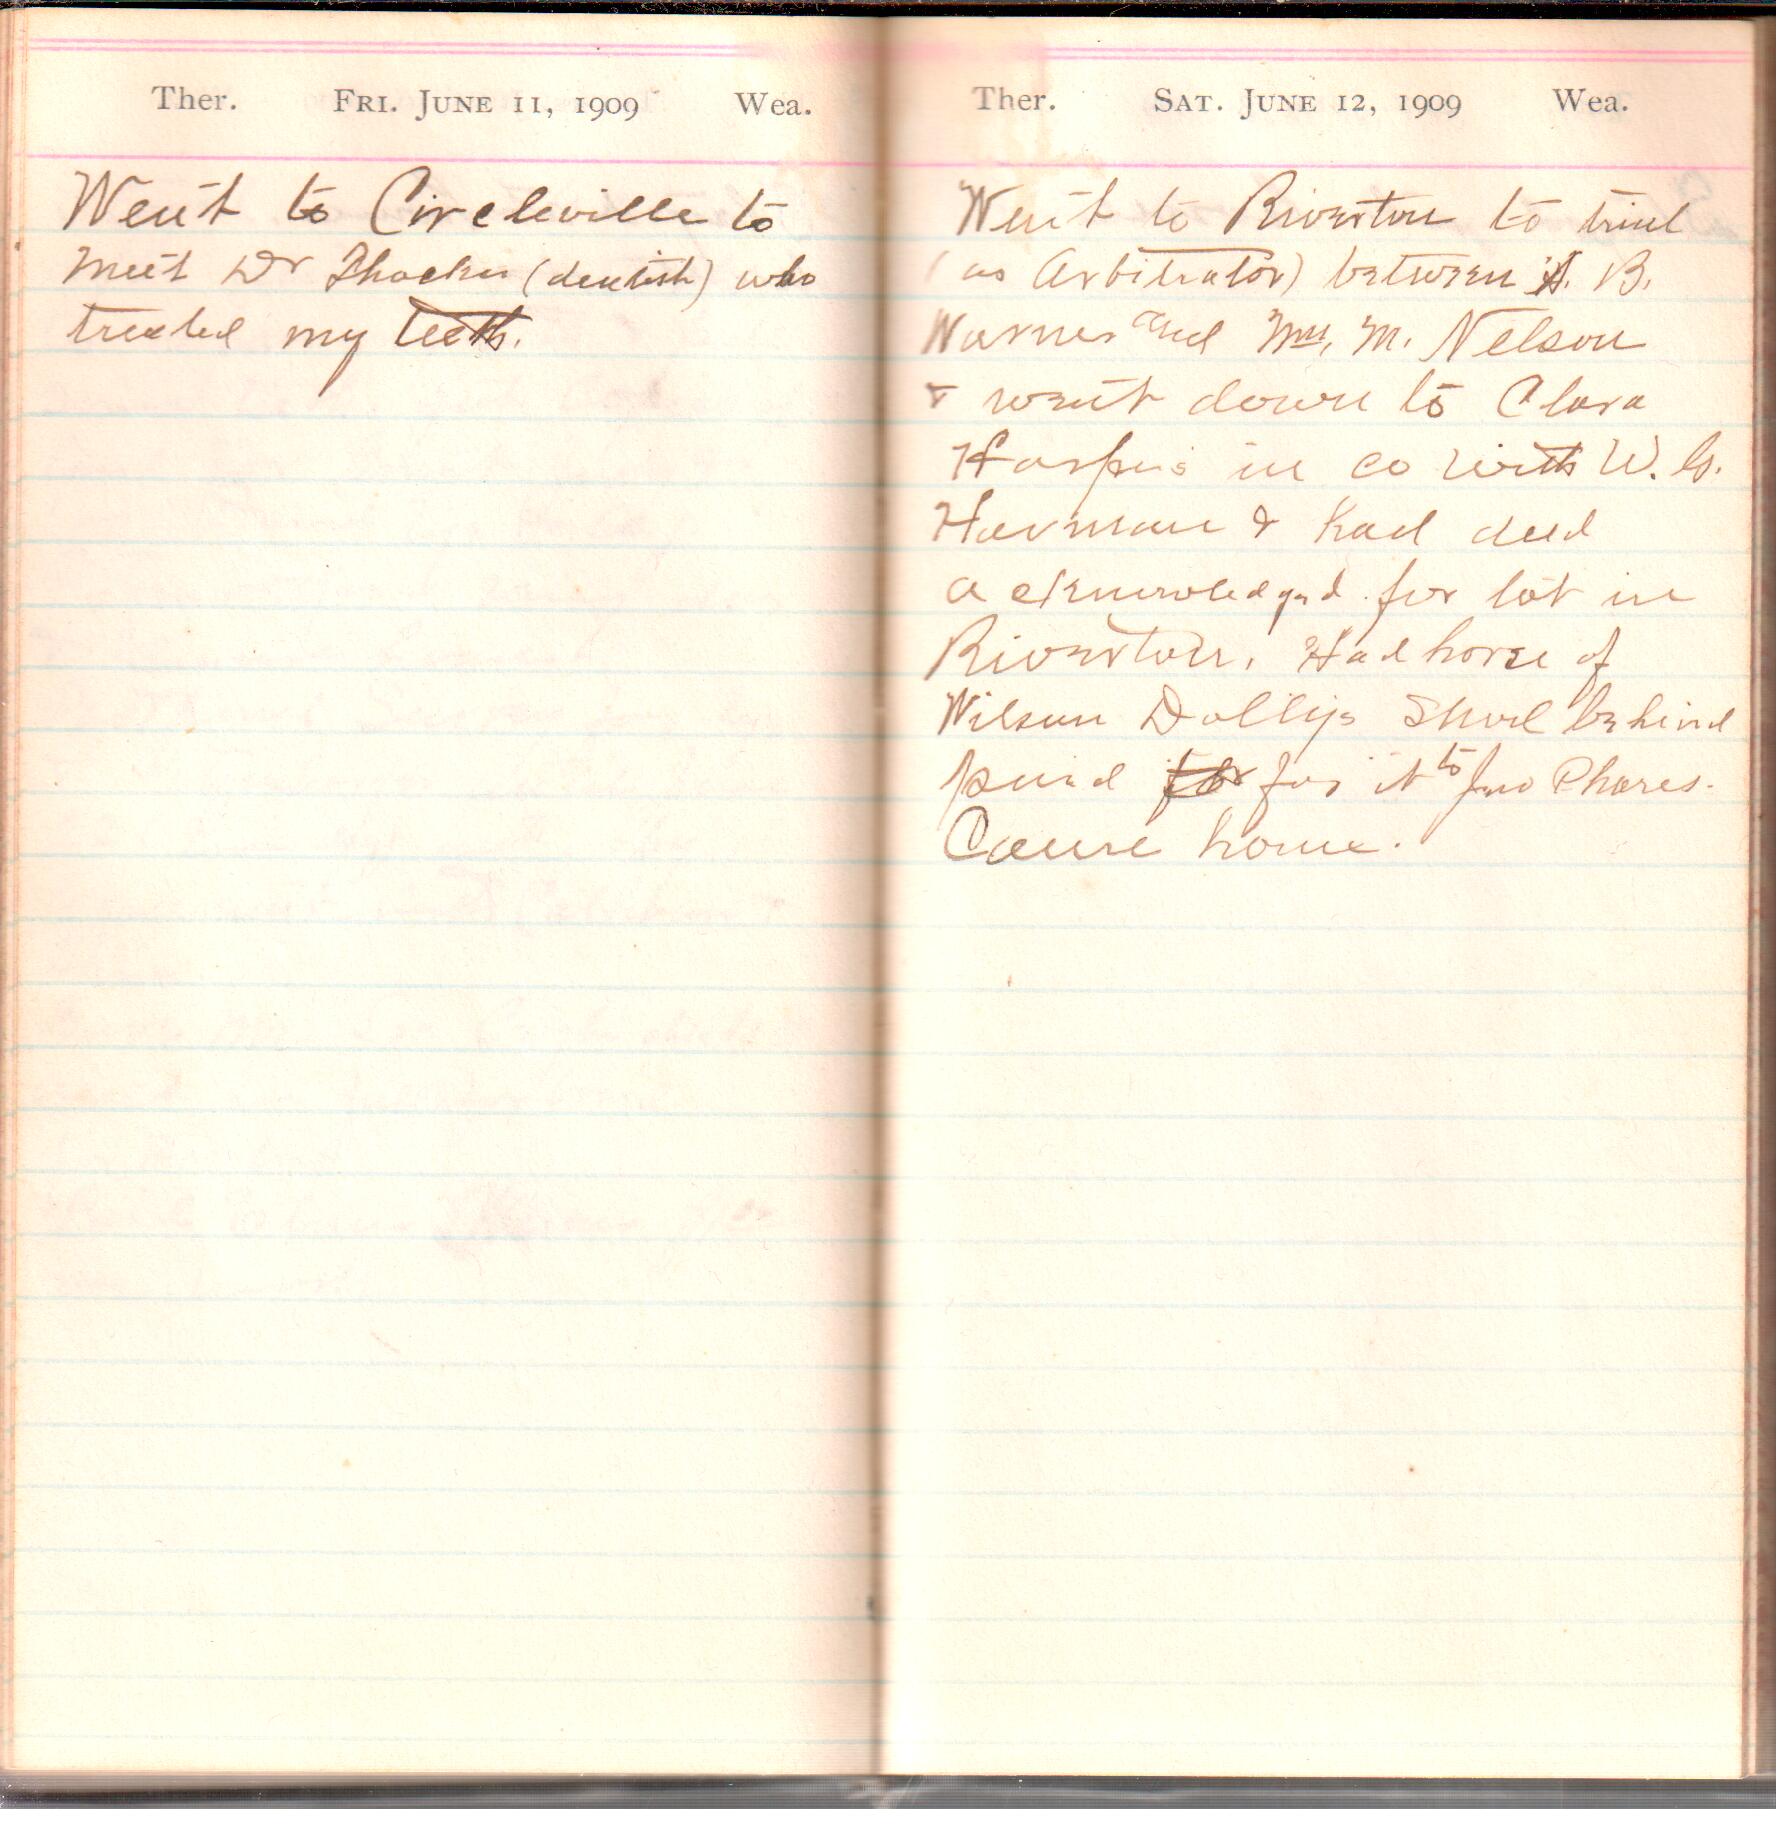 Ther. Fri. June 11, 1909 Wea.
Went to Circleville to
meet Dr Thacker (dentist) who
treated my teeth.
Ther. Sat. June 12, 1909 Wea.
Went to Riverton to trial
(as Arbitrator) between A. B.
Warner and Wm. M. Nelson
& went down to Clara
Harper's in co with W. G.
Harman & had deed
acknowledged for lot in
Riverton. Had horse of
Wilson Dolly's shod behind
paid for for it to Jno Phares.
Came home.